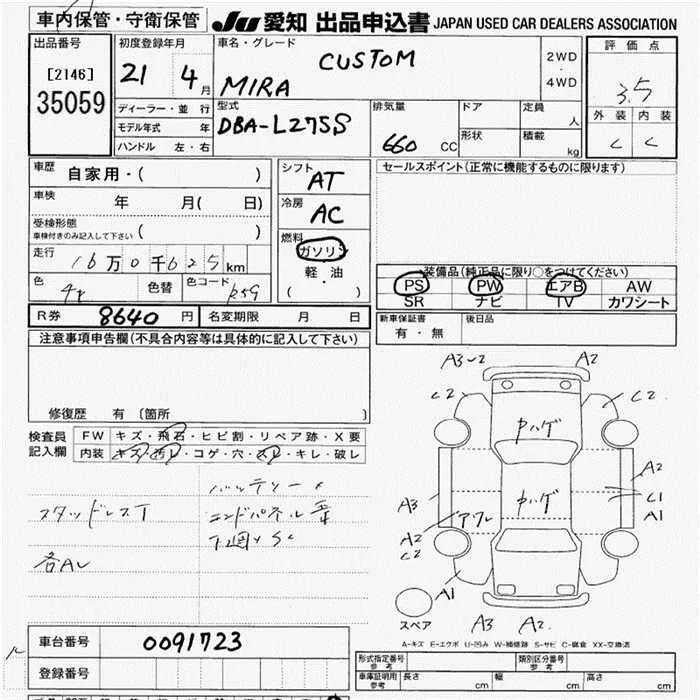 車内保管・守衛保管
JU 愛知 出品申込書 JAPAN USED CAR DEALERS ASSOCIATION
出品番号
[2146]
35059
初度登録年月
21 4月
ディーラー・並行
モデル年式 年
ハンドル 左・右
車名・グレード
CUSTOM
MIRA
2WD
・
4WD
型式
DBA-L275S
排気量
660 CC
ドア
形状
定員
人
積載
kg
評価点
3.5
外装 内装
C C
車歴
自家用・( )
車検
年 月( 日)
受検形態
車検付きのみ記入して下さい ( )
走行
16万0千625km
色
色替
色コード
R券 8640 円
名変期限 月 日
シフト
AT
冷房
AC
燃料
ガソリン
軽・油
( )
セールスポイント(正常に機能するものに限ります)
装備品(純正品に限り○をつけてください)
PS PW エアB AW
SR ナビ TV カワシート
新車保証書
有・無
後日品
注意事項申告欄(不具合内容等は具体的に記入して下さい)
修復歴 有 〔箇所 〕
検査員
記入欄
FW キズ・飛石・ヒビ割・リペア跡・X要
内装 キズ・汚レ・コゲ・穴・スレ・キレ・破レ
バッテリー×
スタッドレスT
エンドパネル
各AU
A3 A2
C2 C2
ヤハゲ
ヤハゲ
A3
A2
C1
A1
A2
C2
A1
スペア
A3 A2
A-キズ E-エクボ U-凹み W-補修跡 S-サビ C-腐食 XX-交換済
車台番号 0091723
登録番号
形式指定番号
参考
類別区分番号
参考
車庫証明用
参考
長さ cm
幅 cm
高さ cm